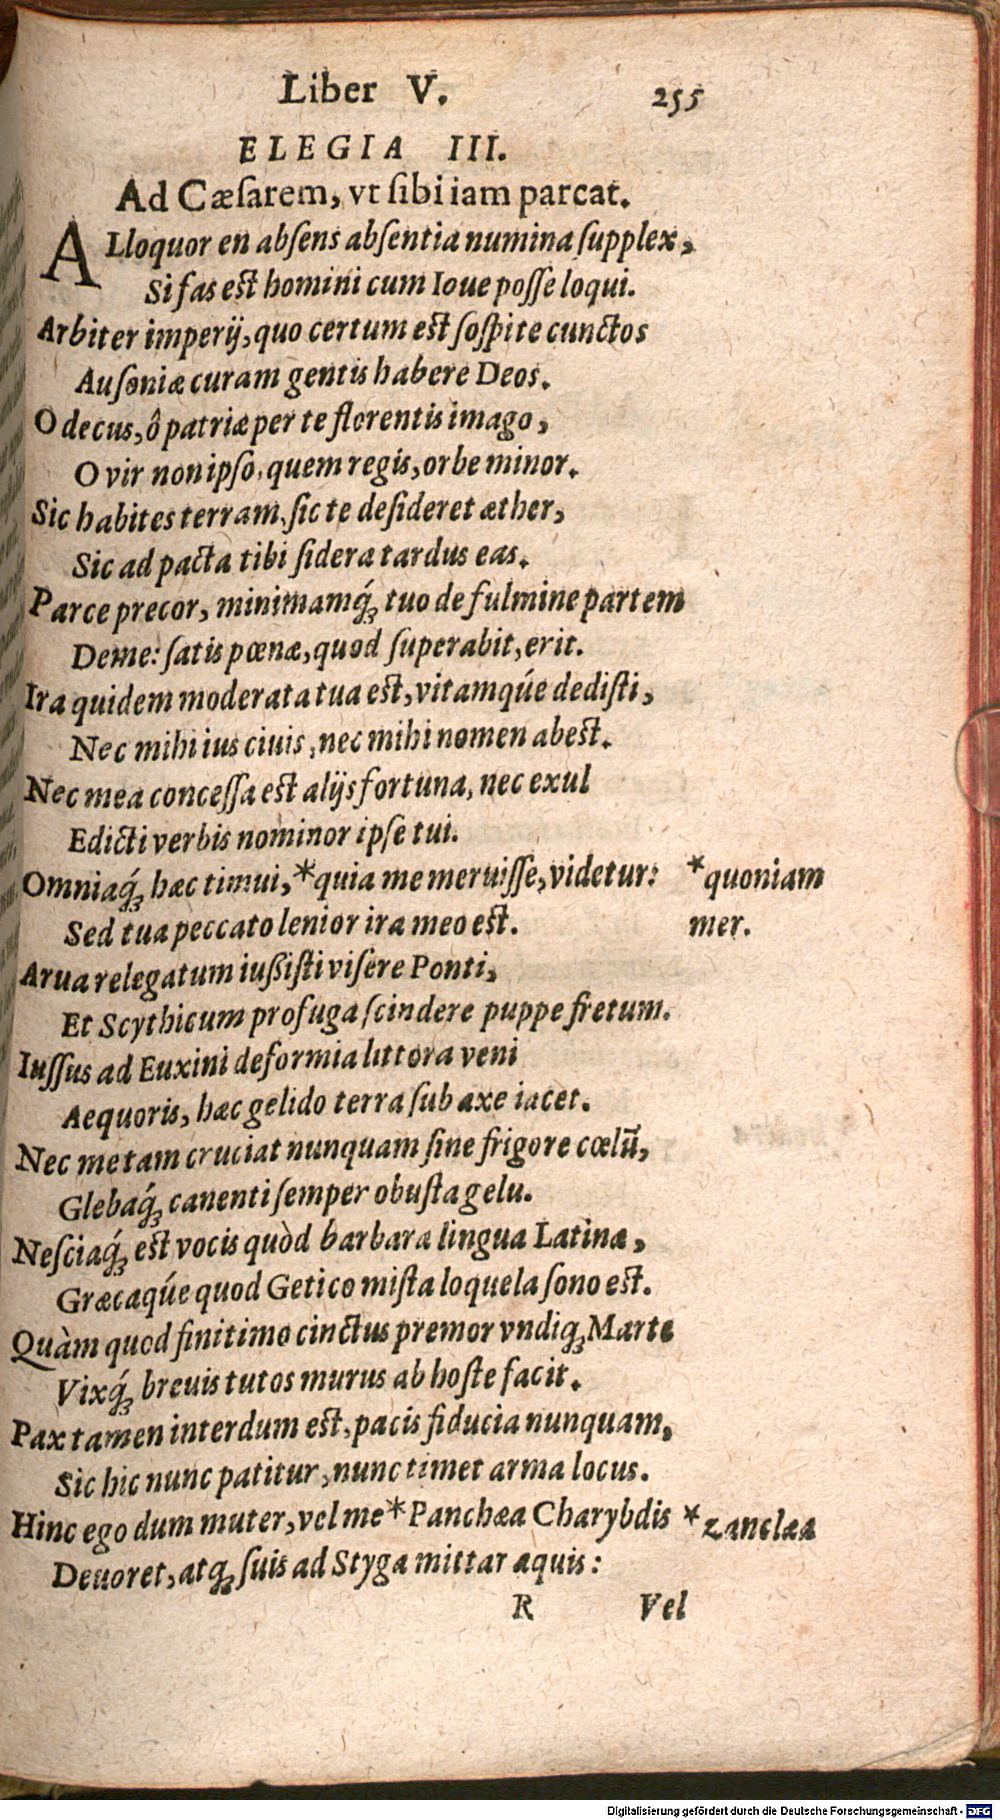 Liber V. 255
ELEGIA III.
Ad Cæsarem, vt sibi iam parcat.
ALloquor en absens absentia numina supplex,
Si fas est homini cum Ioue posse loqui.
Arbiter imperij, quo certum est sospite cunctos
Ausoniæ curam gentis habere Deos.
O decus, ô patriæ per te florentis imago,
O vir non ipso, quem regis, orbe minor.
Sic habites terram, sic te desideret æther,
Sic ad pacta tibi sidera tardus eas.
Parce precor, minimamq́; tuo de fulmine partem
Deme: satis pœnæ, quod superabit, erit.
Ira quidem moderata tua est, vitamqúe dedisti,
Nec mihi ius ciuis, nec mihi nomen abest.
Nec mea concessa est alijs fortuna, nec exul
Edicti verbis nominor ipse tui.
Omniaq́; hæc timui, *quia me meruisse, videtur: *quoniam
Sed tua peccato lenior ira meo est. mer.
Arua relegatum iußisti visere Ponti,
Et Scythicum profuga scindere puppe fretum.
Iussus ad Euxini deformia littora veni
Aequoris, hæc gelido terra sub axe iacet.
Nec me tam cruciat nunquam sine frigore cœlū,
Glebaq́; canenti semper obusta gelu.
Nesciaq́; est vocis quòd barbara lingua Latinæ,
Græcaqúe quod Getico mista loquela sono est.
Quàm quod finitimo cinctus premor vndiq; Marte
Vixq́; breuis tutos murus ab hoste facit.
Pax tamen interdum est, pacis fiducia nunquam,
Sic hic nunc patitur, nunc timet arma locus.
Hinc ego dum muter, vel me *Panchæa Charybdis *zanclæa
Deuoret, atq; suis ad Styga mittar aquis:
R Vel
Digitalisierung gefördert durch die Deutsche Forschungsgemeinschaft - DFG